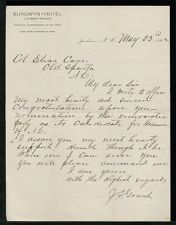 BURGWYN HOTEL
Jackson, N.C. May 23rd
Col Elias Carr
Old Sparta
N.C.
My dear Sir
I write to offer
my most hearty and sincere
Congratulations upon your
nomination by the democratic
party as its Candidate for
of N.C.
I assure you my most hearty
support
When ever I can serve you
you will please command me
I am yours
with the highest regards,
J. S. Grant